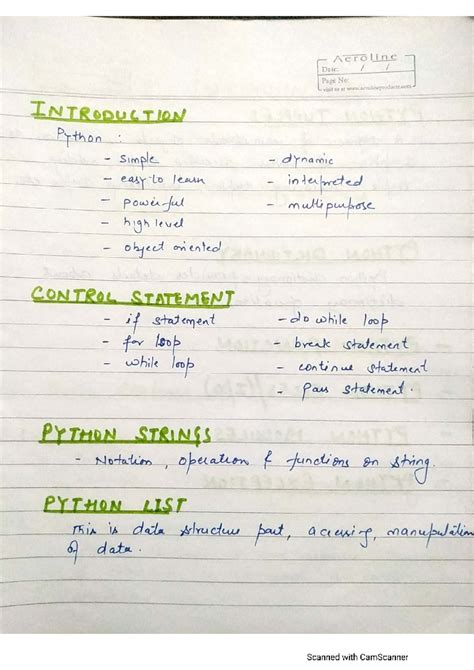 Aeroline
Date: / /
Page No:
visit us at www.aerolineproducts.com
INTRODUCTION
Python :
- simple
- dynamic
- easy to learn
- interpreted
- powerful
- multipurpose
- high level
- object oriented
CONTROL STATEMENT
- if statement
- do while loop
- for loop
- break statement
- while loop
- continue statement
- Pass statement.
PYTHON STRINGS
- Notation, operation & functions on string.
PYTHON LIST
This is data structure part, accessing, manupulation
of data.
Scanned with CamScanner